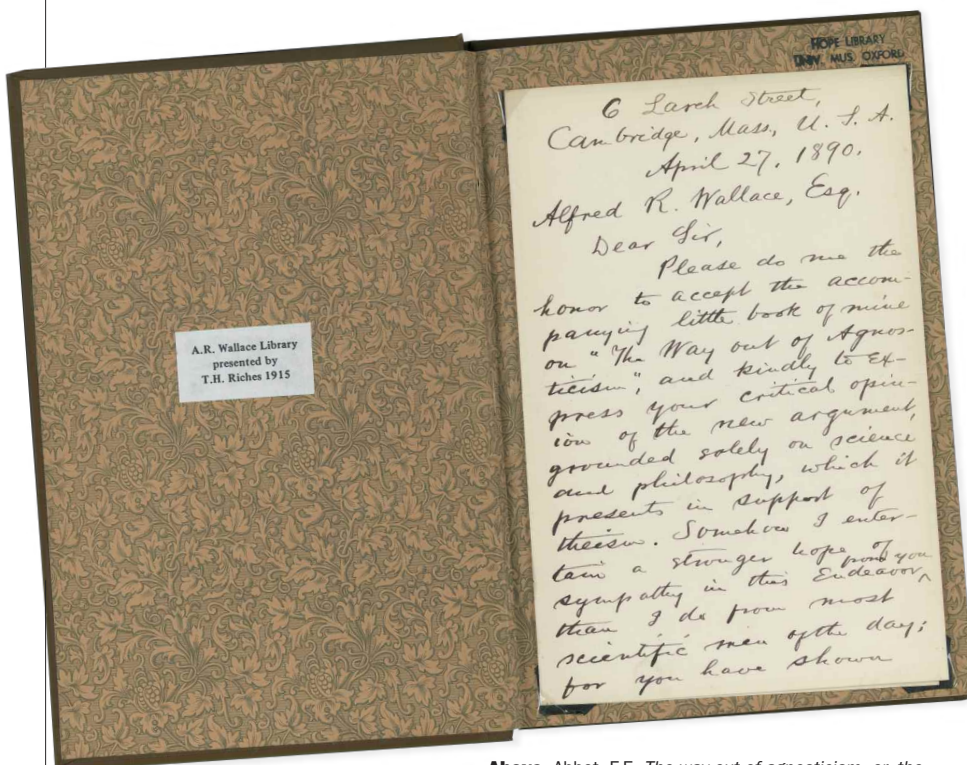 A.R. Wallace Library
presented by
T.H. Riches 1915
HOPE LIBRARY
UNIV. MUS. OXFORD
6 Larch Street,
Cambridge, Mass., U.S.A.
April 27, 1890.
Alfred R. Wallace, Esq.
Dear Sir,
Please do me the
honor to accept the accom-
panying little book of mine
on "The Way out of Agnos-
ticism", and kindly to ex-
press your critical opin-
ion of the new argument,
grounded solely on science
and philosophy, which it
presents in support of
theism. Somehow I enter-
tain a stronger hope of
sympathy in this Endeavor ^ from you
than I do from most
scientific men of the day;
for you have shown
Above. Abbot, F.E. The way out of agnosticism, or, the